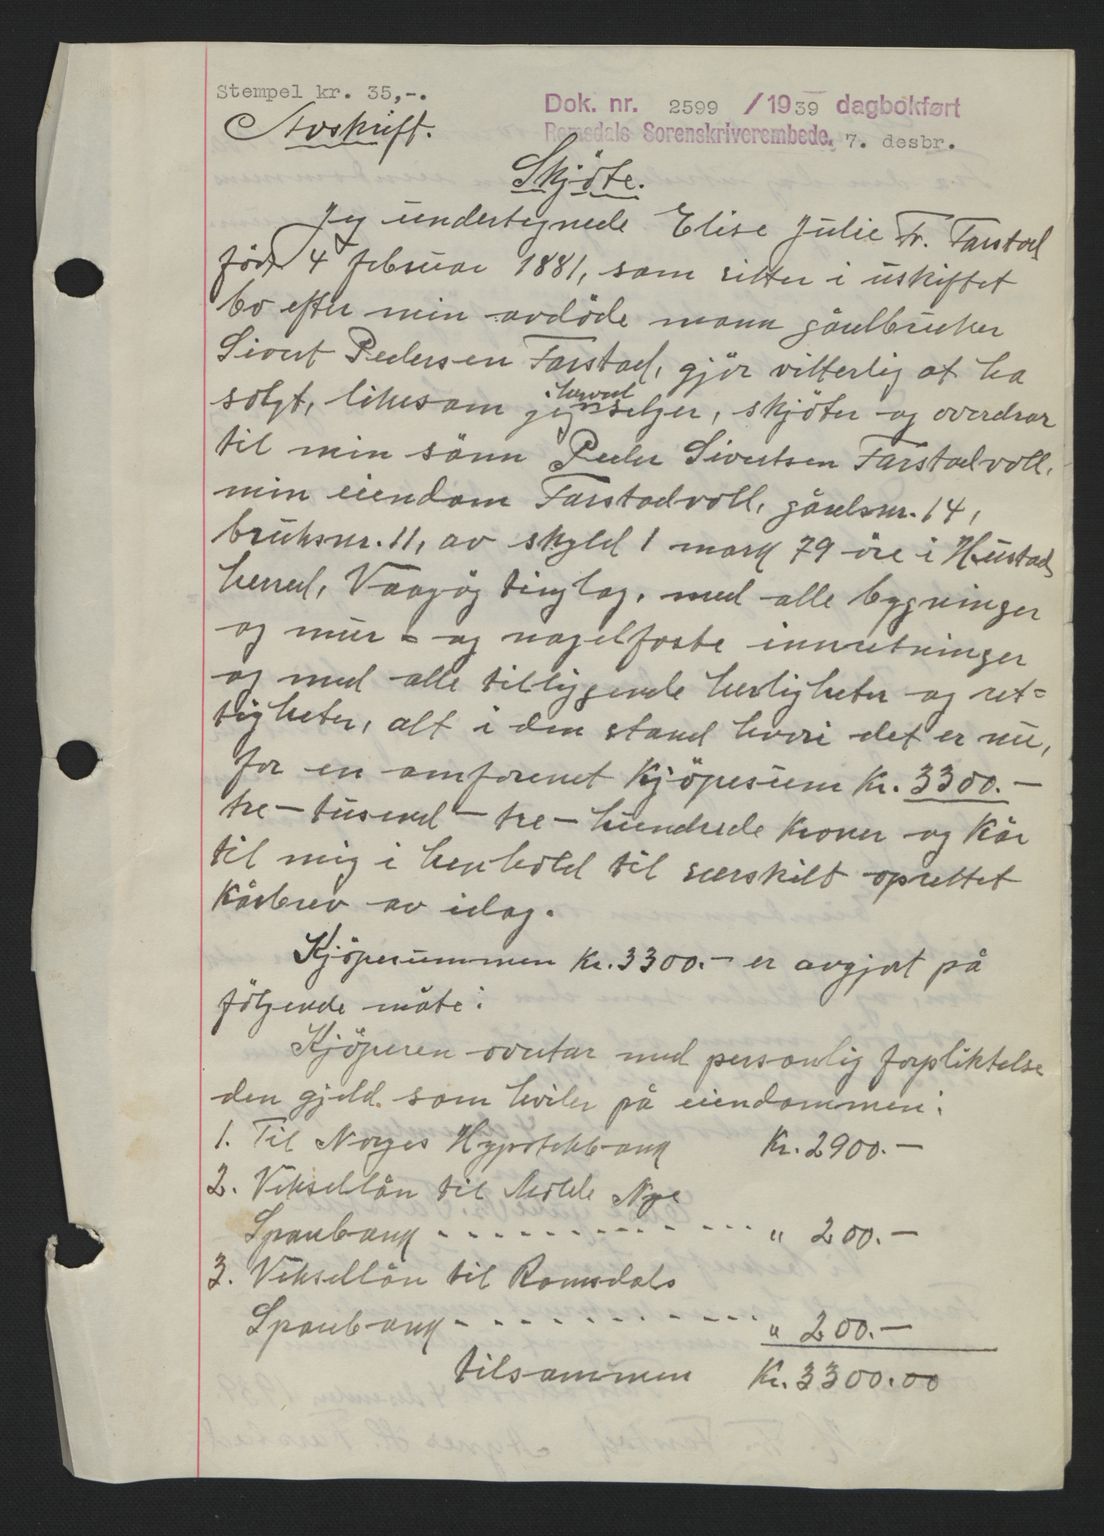 Stempel kr. 35,-.
Dok. nr. 2599 /1939 dagbokført
Romsdals Sorenskriverembede, 7. desbr.
Avskrift.
Skjöte.
Jeg undertegnede Elise Julie Fr. Farstad
född 4 februar 1881, som sitter i uskiftet
bo efter min avdöde mann gårdbruker
Sivert Pedersen Farstad, gjör vitterlig at ha
solgt, likesom jeg herved selger, skjöter og overdrar
til min sönn Peder Sivertsen Farstadvoll,
min eiendom Farstadvoll, gårdsnr. 14,
bruksnr. 11, av skyld 1 mark 79 öre i Hustad
herred, Vaagöy tinglag, med alle bygninger
og mur- og nagelfaste innretninger
og med alle tilliggende herligheter og ret=
tigheter, alt i den stand hvori det er nu,
for en omforenet kjöpesum kr. 3300.-
tre-tusend-tre-hundrede kroner og kår
til mig i henhold til særskilt oprettet
kårbrev av idag.
Kjöpesummen kr. 3300.- er avgjort på
fölgende måte:
Kjöperen overtar med personlig forpliktelse
den gjeld som hviler på eiendommen:
1. Til Norges Hypotekbank Kr. 2900.-
2. Veksellån til Molde Nye
Sparebank - - - - - - - - - - - - " 200.-
3. Veksellån til Romsdals
Sparebank - - - - - - - - - - - " 200.-
tilsammen Kr. 3300.00